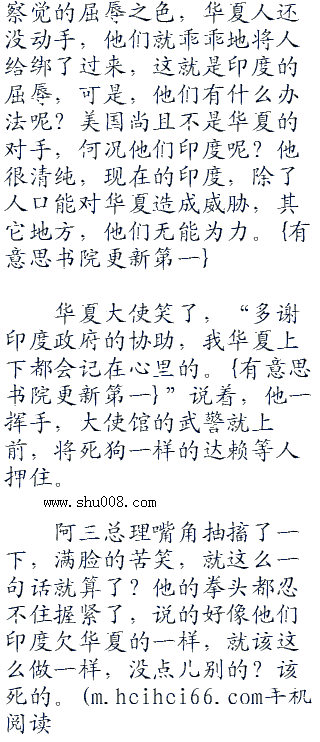 察觉的屈辱之色，华夏人还
没动手，他们就乖乖地将人
给绑了过来，这就是印度的
屈辱，可是，他们有什么办
法呢？美国尚且不是华夏的
对手，何况他们印度呢？他
很清纯，现在的印度，除了
人口能对华夏造成威胁，其
它地方，他们无能为力。{有
意思书院更新第一}
华夏大使笑了，“多谢
印度政府的协助，我华夏上
下都会记在心里的。{有意思
书院更新第一}”说着，他一
挥手，大使馆的武警就上
前，将死狗一样的达赖等人
押住。
www.shu008.com
阿三总理嘴角抽搐了一
下，满脸的苦笑，就这么一
句话就算了？他的拳头都忍
不住握紧了，说的好像他们
印度欠华夏的一样，就该这
么做一样，没点儿别的？该
死的。(m.hcihci66.com手机
阅读